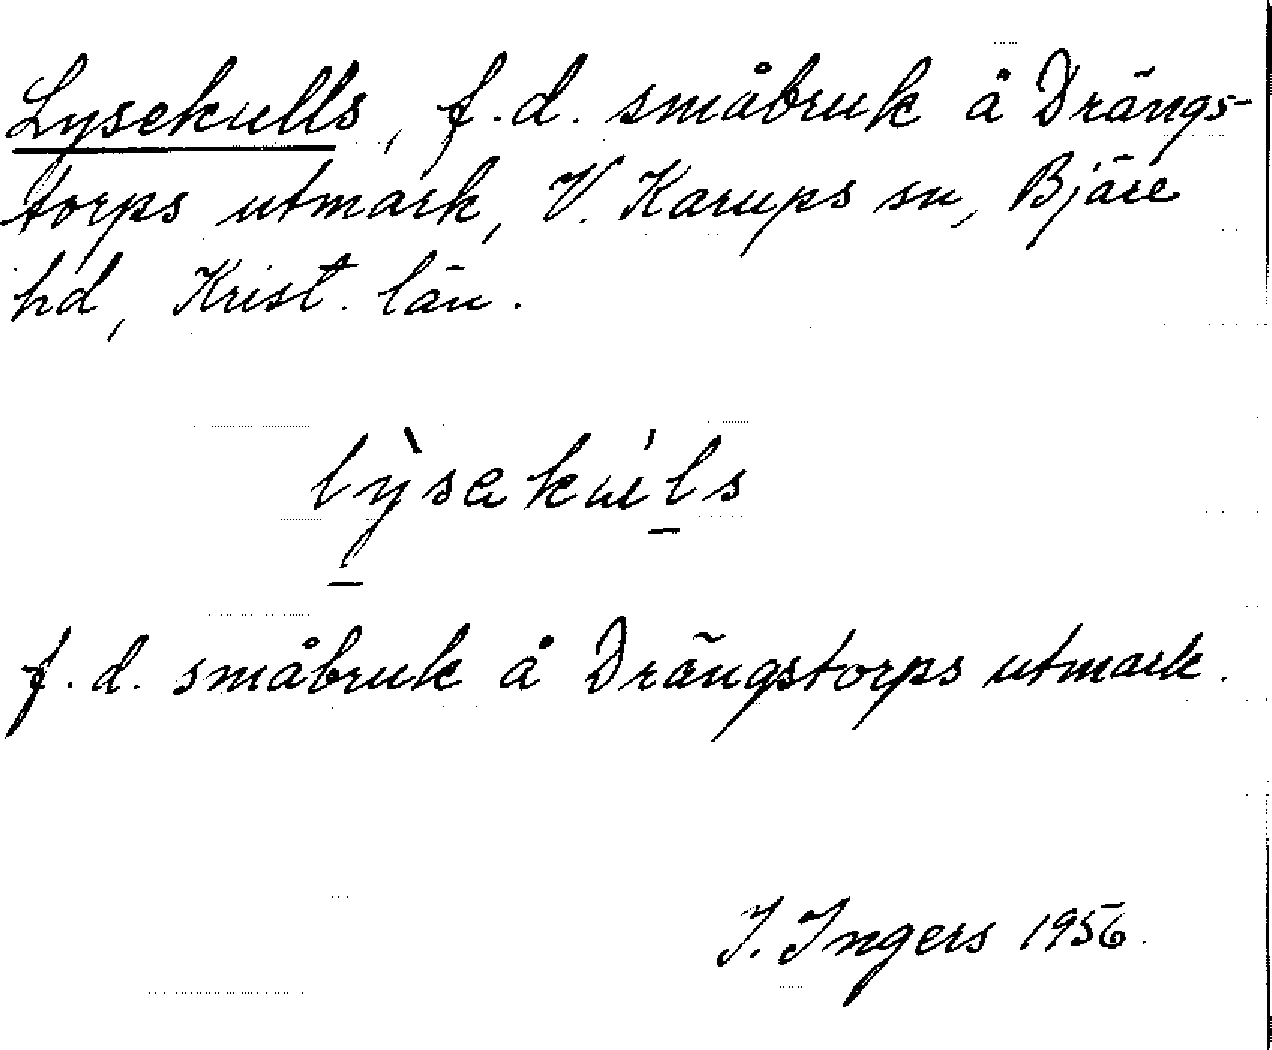 Lysekulls, f.d. småbruk å Drängs-
torps utmark, V. Karups sn, Bjäre
hd, Krist. län.
lỳsekúls
f.d. småbruk å Drängstorps utmark.
I. Ingers 1956.